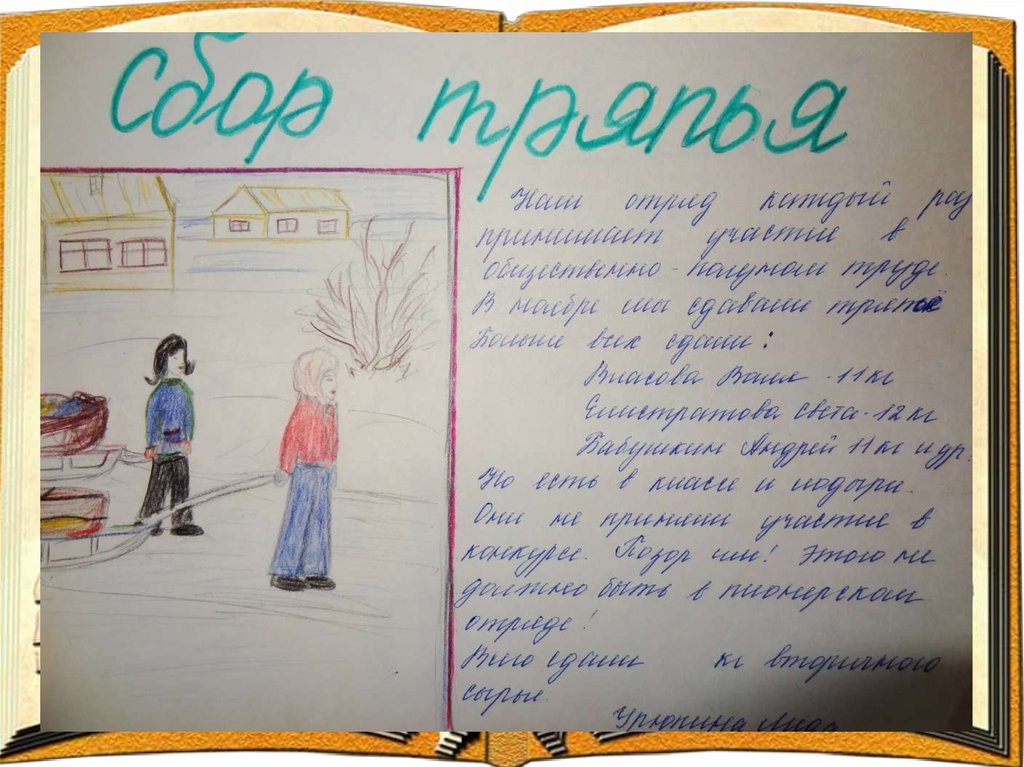 Сбор тряпья
Наш отряд каждый раз
принимает участие в
общественно-полезном труде.
В ноябре мы сдавали тряпьё
Больше всех сдали:
Власова Валя - 11 кг
Елистратова Света - 12 кг
Бабушкин Андрей 11 кг и др.
Но есть в классе и лодыри.
Они не приняли участие в
конкурсе. Позор им! Этого не
должно быть в пионерском
отряде!
Всего сдали кг вторичного
сырья.
Урюпина Лида